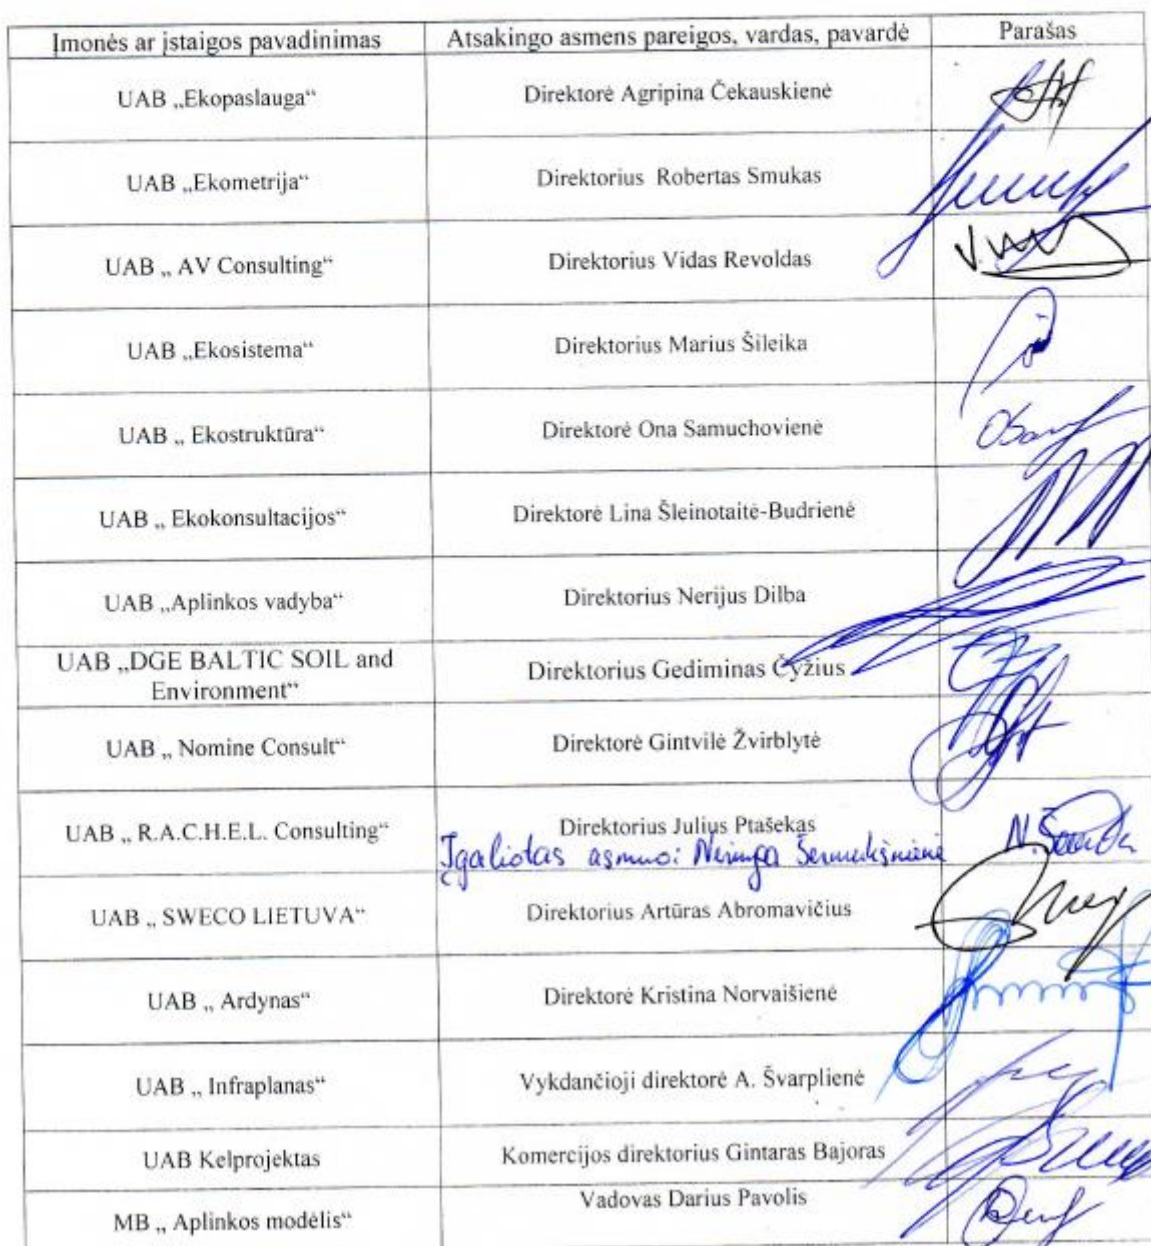 Įmonės ar įstaigos pavadinimas Atsakingo asmens pareigos, vardas, pavardė Parašas
UAB „Ekopaslauga“ Direktorė Agripina Čekauskienė
UAB „Ekometrija“ Direktorius Robertas Smukas
UAB „ AV Consulting“ Direktorius Vidas Revoldas
UAB „Ekosistema“ Direktorius Marius Šileika
UAB „ Ekostruktūra“ Direktorė Ona Samuchovienė
UAB „ Ekokonsultacijos“ Direktorė Lina Šleinotaitė-Budrienė
UAB „Aplinkos vadyba“ Direktorius Nerijus Dilba
UAB „DGE BALTIC SOIL and
Environment“
Direktorius Gediminas Čyžius
UAB „ Nomine Consult“ Direktorė Gintvilė Žvirblytė
UAB „ R.A.C.H.E.L. Consulting“ Direktorius Julius Ptašekas
Įgaliotas asmuo: Neringa Šermukšnienė
UAB „ SWECO LIETUVA“ Direktorius Artūras Abromavičius
UAB „ Ardynas“ Direktorė Kristina Norvaišienė
UAB „ Infraplanas“ Vykdančioji direktorė A. Švarplienė
UAB Kelprojektas Komercijos direktorius Gintaras Bajoras
MB „ Aplinkos modėlis“ Vadovas Darius Pavolis